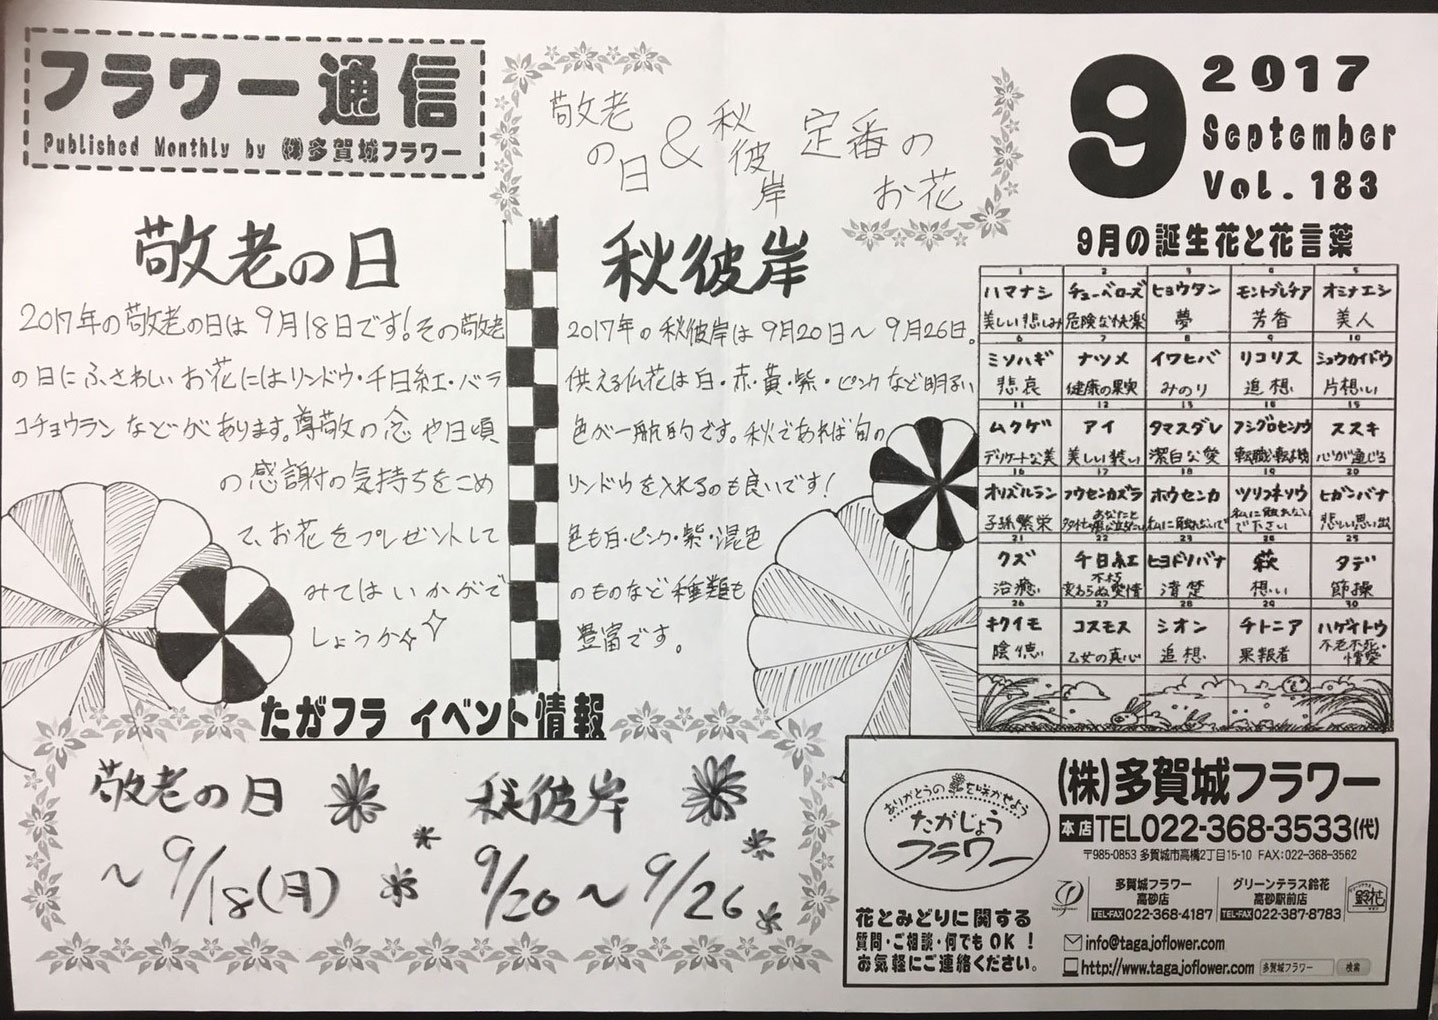 フラワー通信
Published Monthly by ㈱多賀城フラワー
敬老の日&秋彼岸 定番のお花
9
2017
September
Vol.183
敬老の日
2017年の敬老の日は9月18日です!その敬老
の日にふさわしいお花にはリンドウ・千日紅・バラ
コチョウランなどがあります。尊敬の念や日頃
の感謝の気持ちをこめ
て、お花をプレゼントして
みてはいかがで
しょうか
秋彼岸
2017年の秋彼岸は9月20日〜9月26日。
供える仏花は白・赤・黄・紫・ピンクなど明るい
色が一般的です。秋であれば旬の
リンドウを入れるのも良いです!
色も白・ピンク・紫・混色
のものなど種類も
豊富です。
9月の誕生花と花言葉
1 2 3 4 5
ハマナシ チューベローズ ヒョウタン モントブレチア オミナエシ
美しい悲しみ 危険な快楽 夢 芳香 美人
6 7 8 9 10
ミソハギ ナツメ イワヒバ リコリス シュウカイドウ
悲哀 健康の果実 みのり 追想 片想い
11 12 13 14 15
ムクゲ アイ タマスダレ フシグロセンノウ ススキ
デリケートな美 美しい装い 潔白な愛 転職・転機 心が通じる
16 17 18 19 20
オリヅルラン フウセンカズラ ホウセンカ ツリフネソウ ヒガンバナ
子孫繁栄 あなたと 私に触れないで 私に触れないで下さい 悲しい思い出
21 22 23 24 25
クズ 千日紅 ヒヨドリバナ 萩 タデ
治癒 不朽 変わらぬ愛情 清楚 想い 節操
26 27 28 29 30
キクイモ コスモス シオン チトニア ハゲイトウ
陰徳 乙女の真心 追想 果報者 不老不死・情愛
たがフラ イベント情報
敬老の日 秋彼岸
〜9/18(月) 9/20〜9/26
ありがとうの花を咲かせよう
たがじょう
フラワー
花とみどりに関する
質問・ご相談・何でもOK!
お気軽にご連絡ください。
(株)多賀城フラワー
本店 TEL022-368-3533(代)
〒985-0853 多賀城市高橋2丁目15-10 FAX:022-368-3562
多賀城フラワー
高砂店
TEL・FAX 022-368-4187
グリーンテラス鈴花
高砂駅前店
TEL・FAX 022-387-8783
鈴花
info@tagajoflower.com
http://www.tagajoflower.com 多賀城フラワー 検索